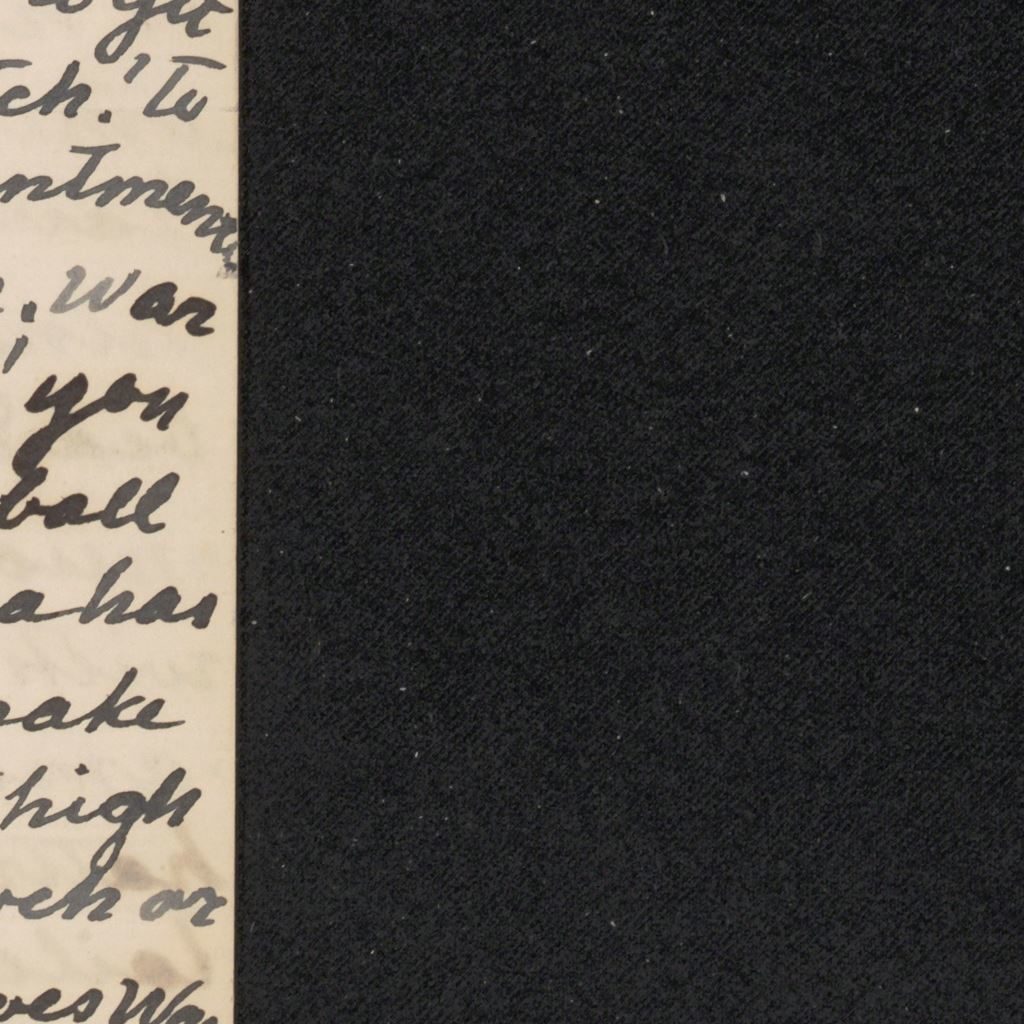 to get
tch. To
ntments
. War
you
ball
a has
make
high
rch or
ves Wa